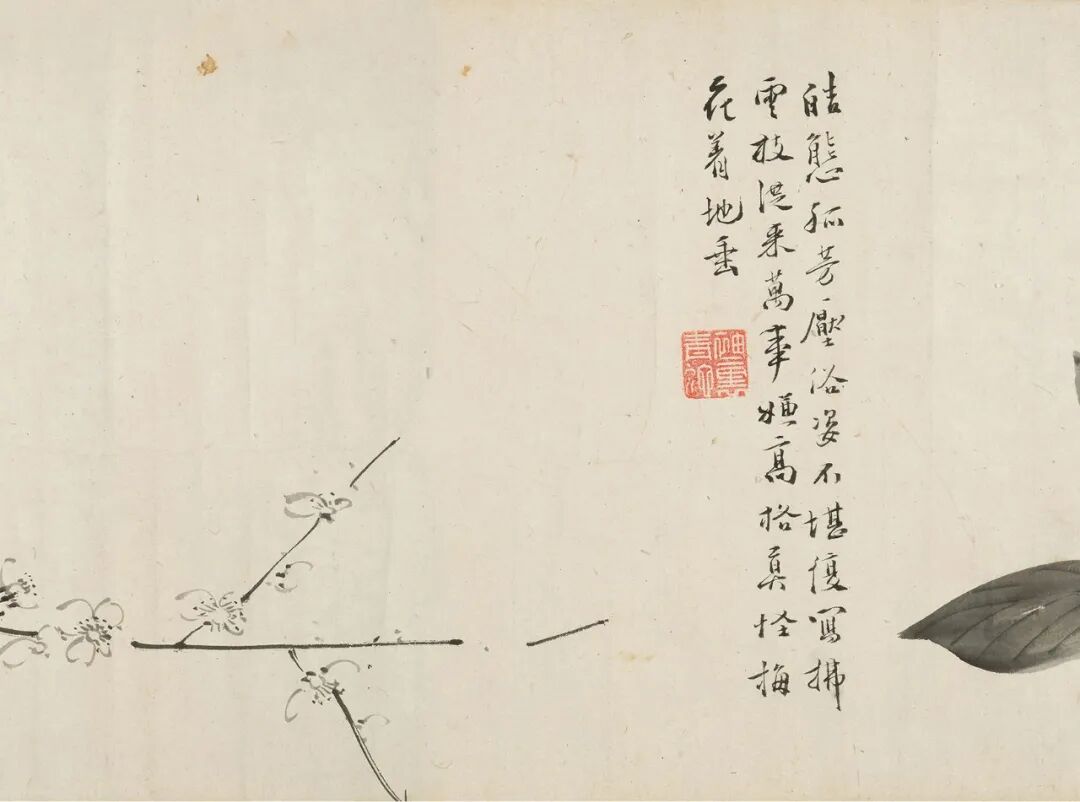 皓態孤芳壓俗姿不堪復寫拂
雲枝從來萬事嫌高格莫怪梅
花着地垂